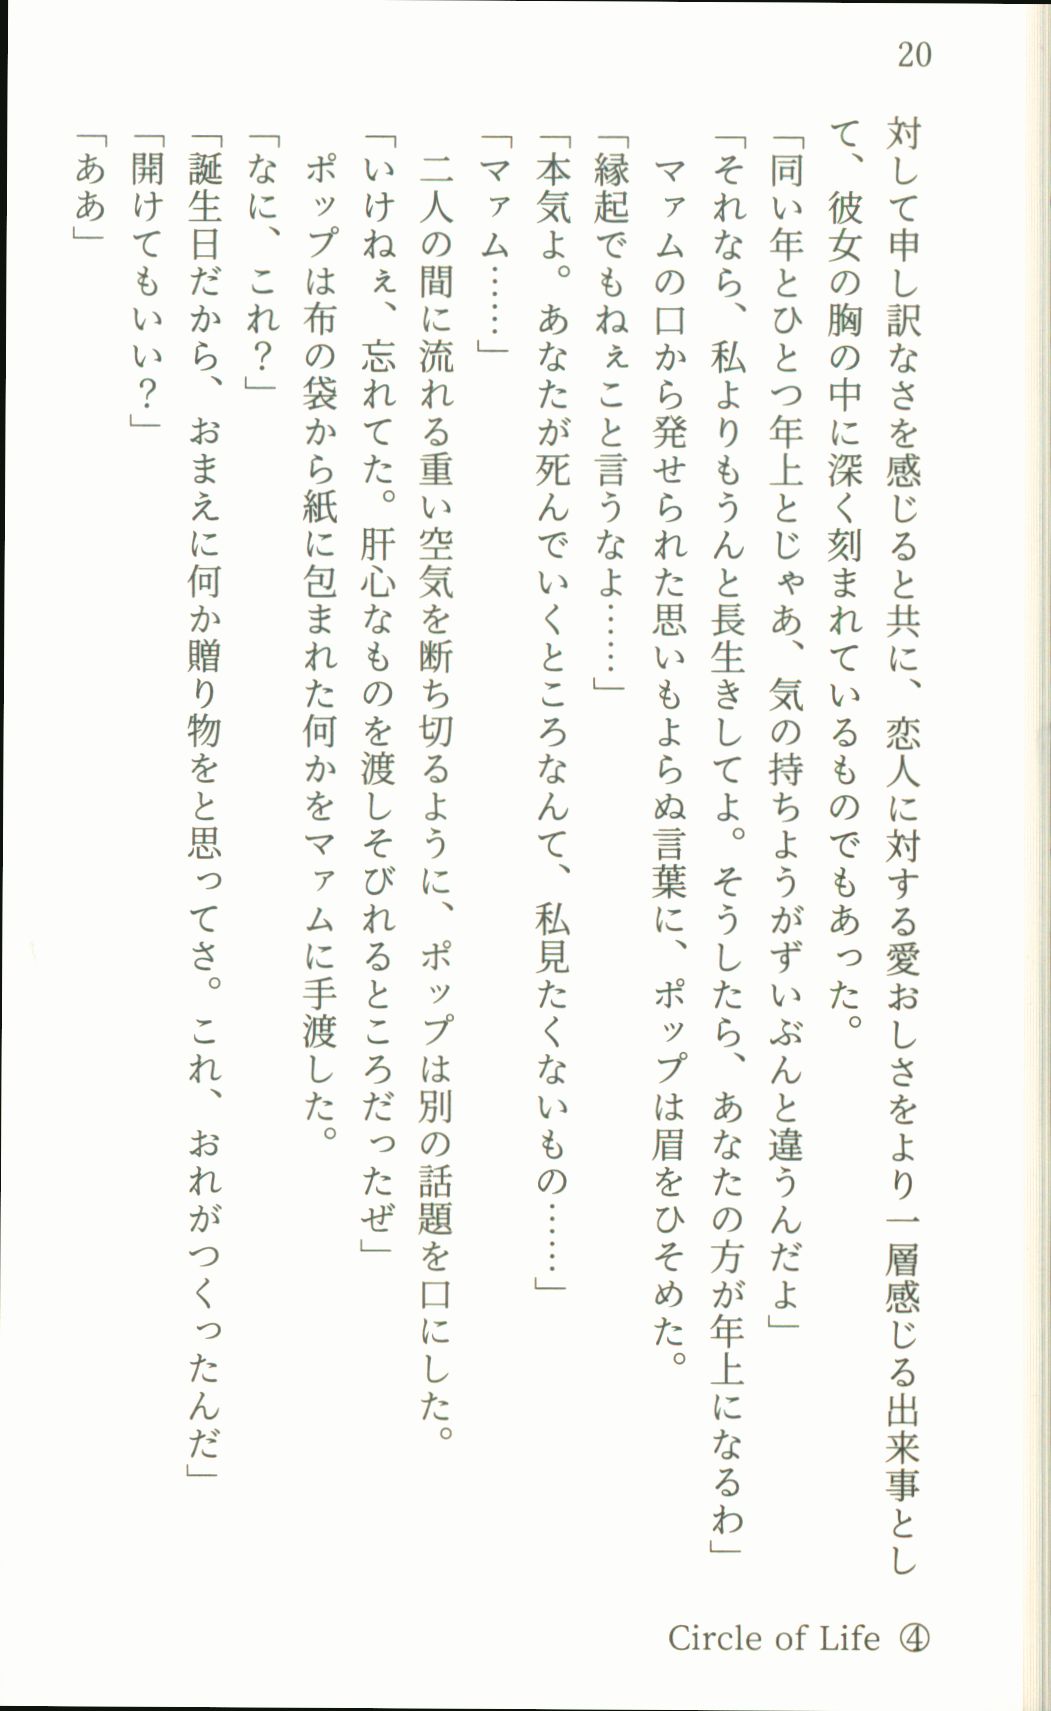 20
対して申し訳なさを感じると共に、恋人に対する愛おしさをより一層感じる出来事とし
て、彼女の胸の中に深く刻まれているものでもあった。
「同い年とひとつ年上とじゃあ、気の持ちようがずいぶんと違うんだよ」
「それなら、私よりもうんと長生きしてよ。そうしたら、あなたの方が年上になるわ」
　マァムの口から発せられた思いもよらぬ言葉に、ポップは眉をひそめた。
「縁起でもねぇこと言うなよ……」
「本気よ。あなたが死んでいくところなんて、私見たくないもの……」
「マァム……」
　二人の間に流れる重い空気を断ち切るように、ポップは別の話題を口にした。
「いけねぇ、忘れてた。肝心なものを渡しそびれるところだったぜ」
　ポップは布の袋から紙に包まれた何かをマァムに手渡した。
「なに、これ？」
「誕生日だから、おまえに何か贈り物をと思ってさ。これ、おれがつくったんだ」
「開けてもいい？」
「ああ」
Circle of Life ④